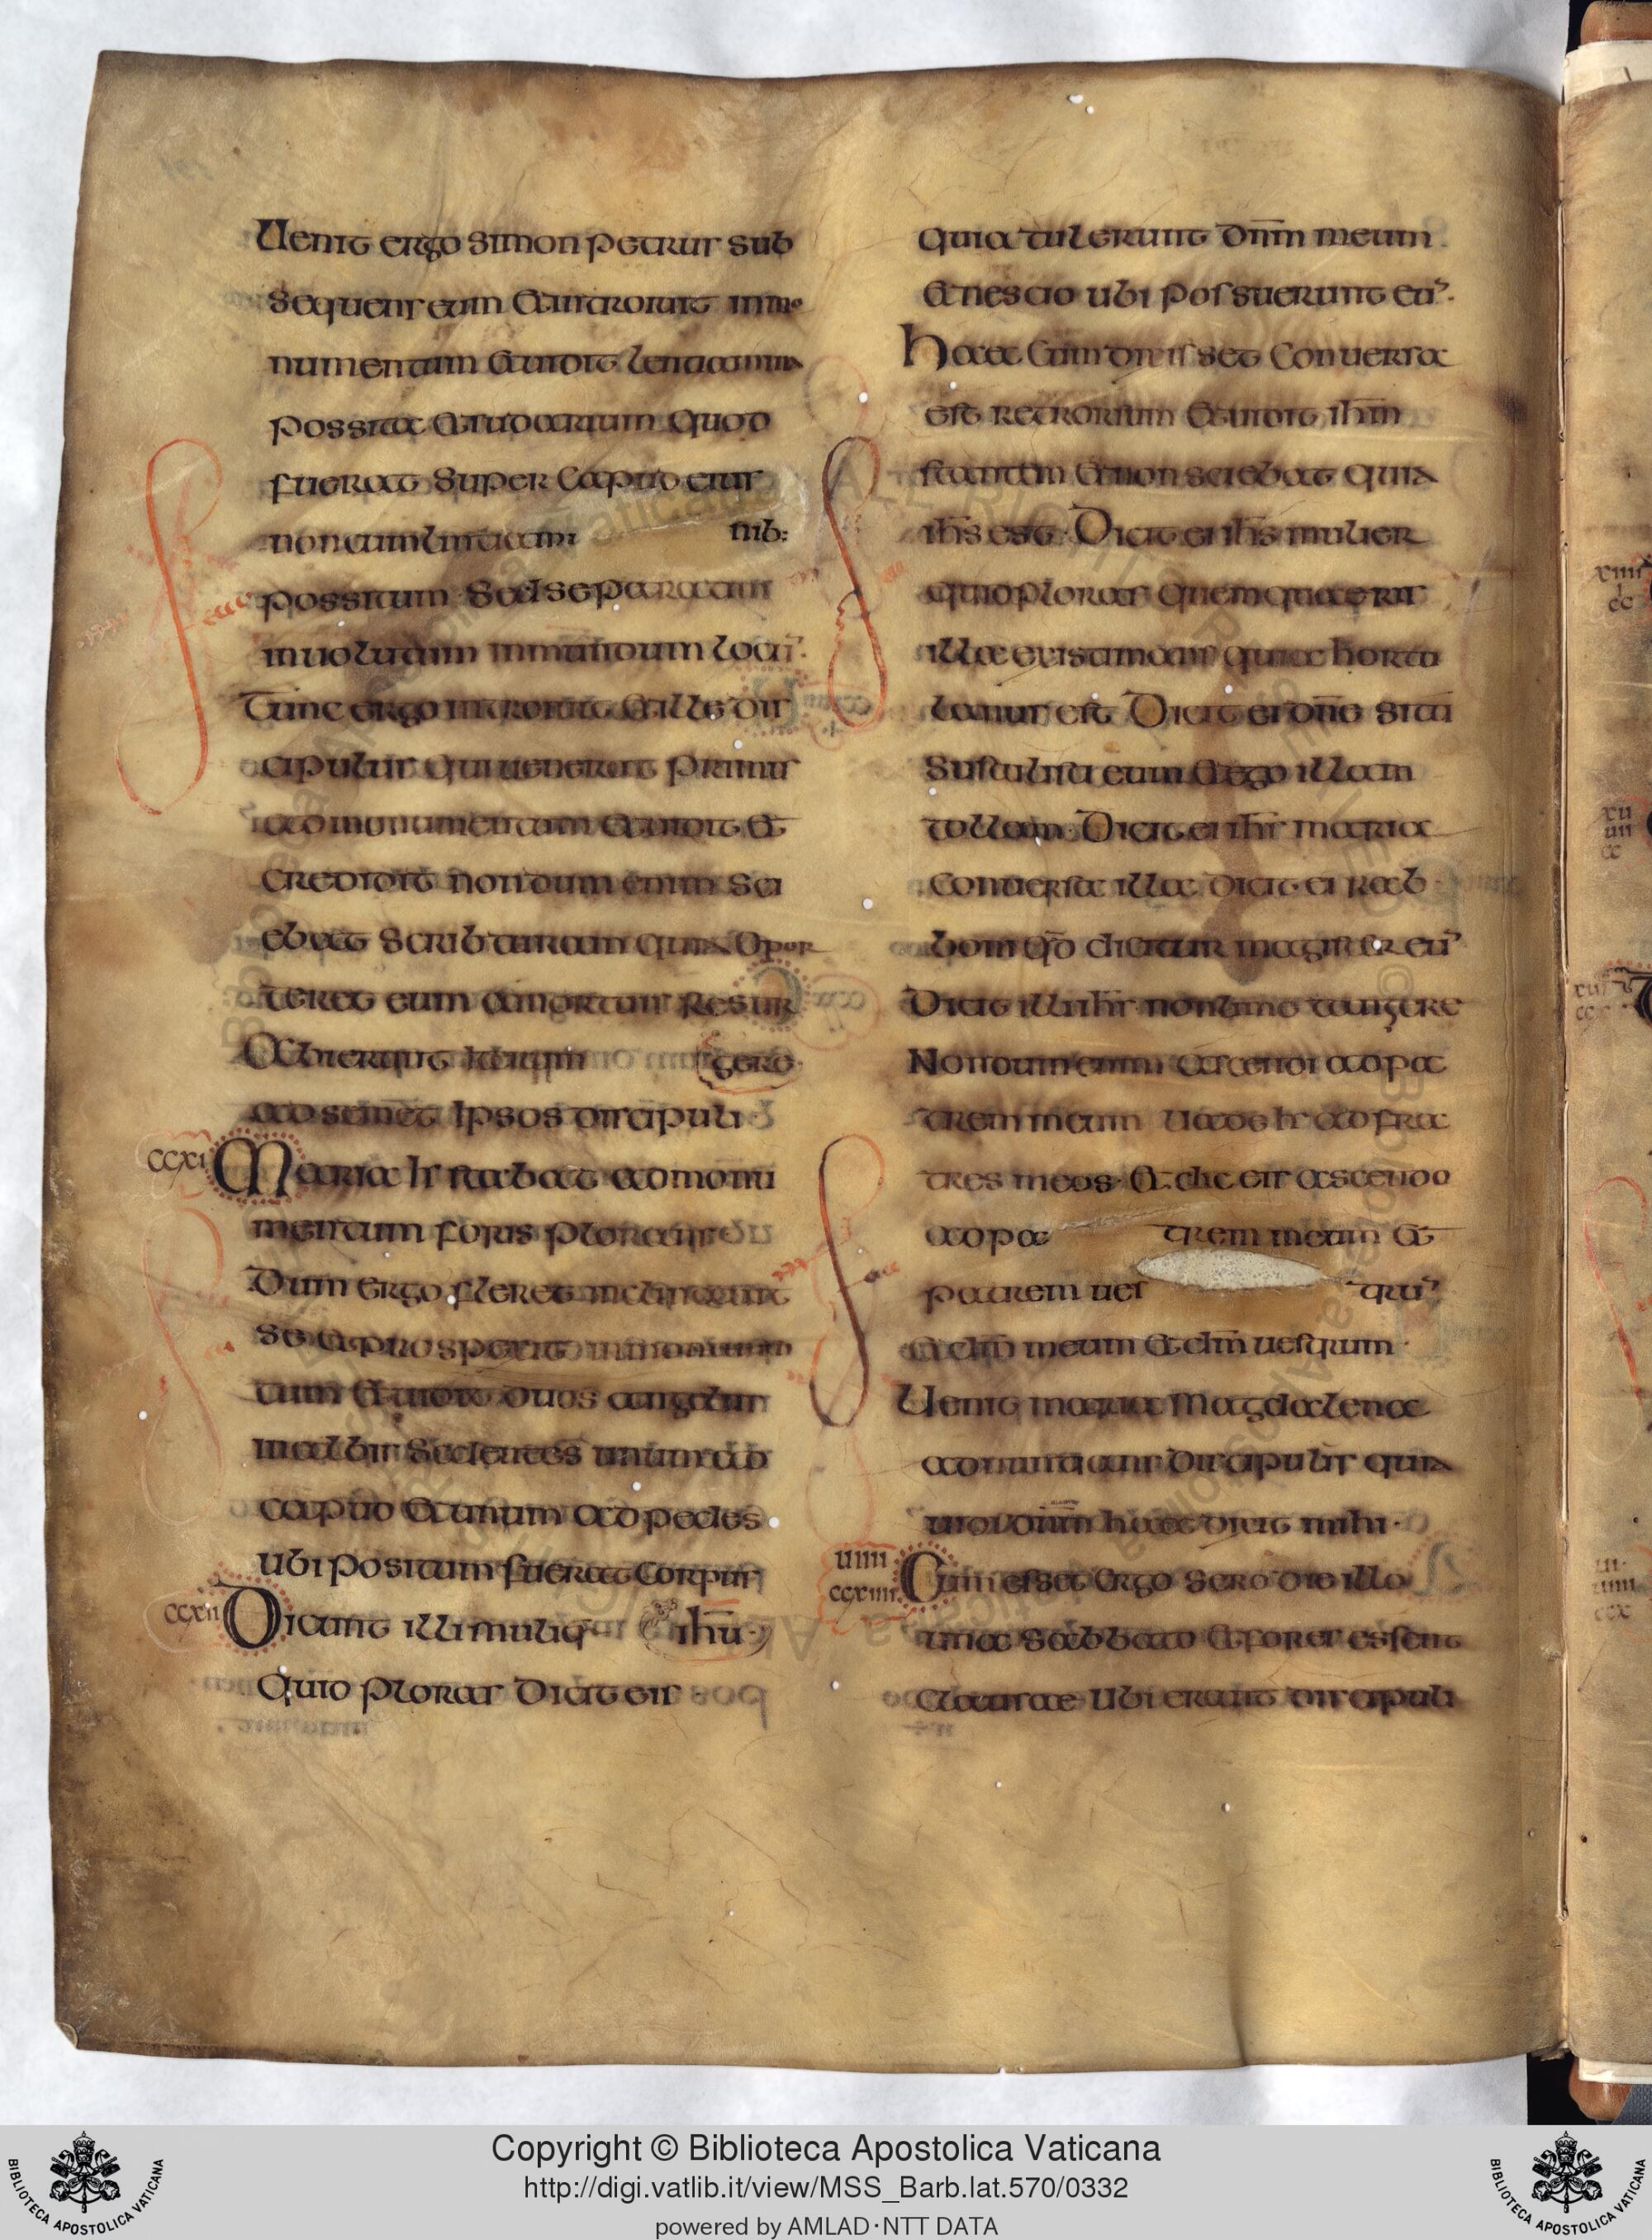 Uenit ergo simon petrus sub
sequens eum et introiuit in mo
numentum et uidit lentiamina
possita et sudarium quod
fuerat super caput eius
non cum lintiami nib:
possitum sed separatim
inuolutum in unum locū·
Tunc ergo introiuit et ille dis
cipulus qui uenerat primus
ad monumentum et uidit et
credidit nondum enim sci
ebat scribturam quia opor
teret eum a mortuis resur
Abierunt iterum gere
ad semet ipsos discipuli·
ccxi Maria hr stabat ad monu
mentum foris plorans
Dum ergo fleret inclinauit
se et prospexit in monumen
tum et uidit duos angelus
in albis sedentes unum ad
caput et unum ad pedes
ubi positum fuerat corpus
ccxii Dicunt illi mulier ihū·
quid ploras dicit eis
quia tulerunt dnm̄ meum
et nescio ubi possuerunt eū·
haec cum dixisset conuersa
est retrorsum et uidit ihm̄
stantem et non sciebat quia
ihs̄ est· Dicit ei ihs̄ mulier
quid ploras quem quaeris
illa existimans quia hortu
lanus est Dicit ei dnē si tu
sustulisti eum et ego illum
tollam· Dicit ei ihs̄ maria
conuersa illa dicit ei rab
boni qd̄ dicitur magister eū
Dicit illi ihs̄ noli me tangere
Nondum enim ascendi ad pa
trem meum uade hr ad fra
tres meos· et dic eis ascendo
ad pa trem meum et
patrem ues trū
et dm̄ meum et dm̄ uestrum·
Uenit maria magdalena
adnuntians discipulis quia
uidi dnm̄ haec dicit mihi·
uiiii ccxiiii Cum esset ergo sero die illo
una sabbato et fores essent
clausae ubi erant discipuli
xiiii
cc
Copyright © Biblioteca Apostolica Vaticana
http://digi.vatlib.it/view/MSS_Barb.lat.570/0332
powered by AMLAD·NTT DATA
BIBLIOTECA APOSTOLICA VATICANA
BIBLIOTECA APOSTOLICA VATICANA